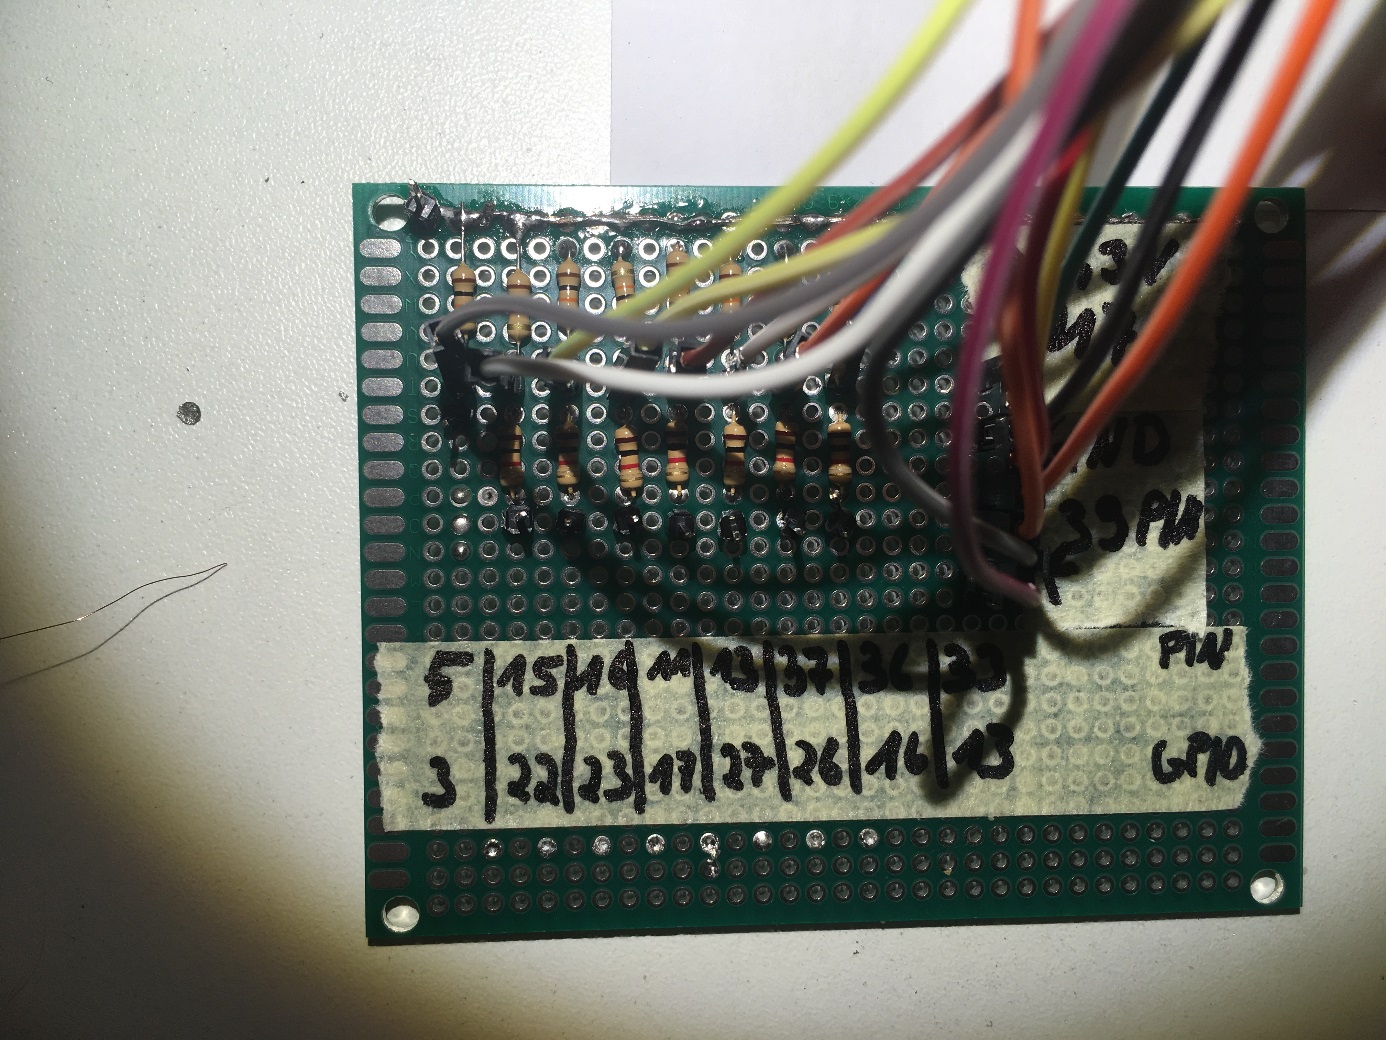 GND
39 PIN
5 15 16 11 13 37 36 33 PIN
3 22 23 17 27 26 16 13 GPIO